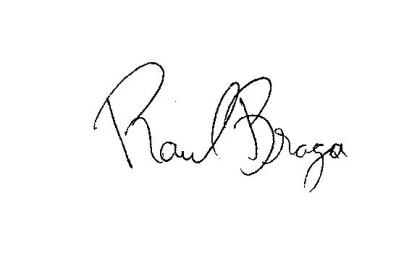 Raul Braga